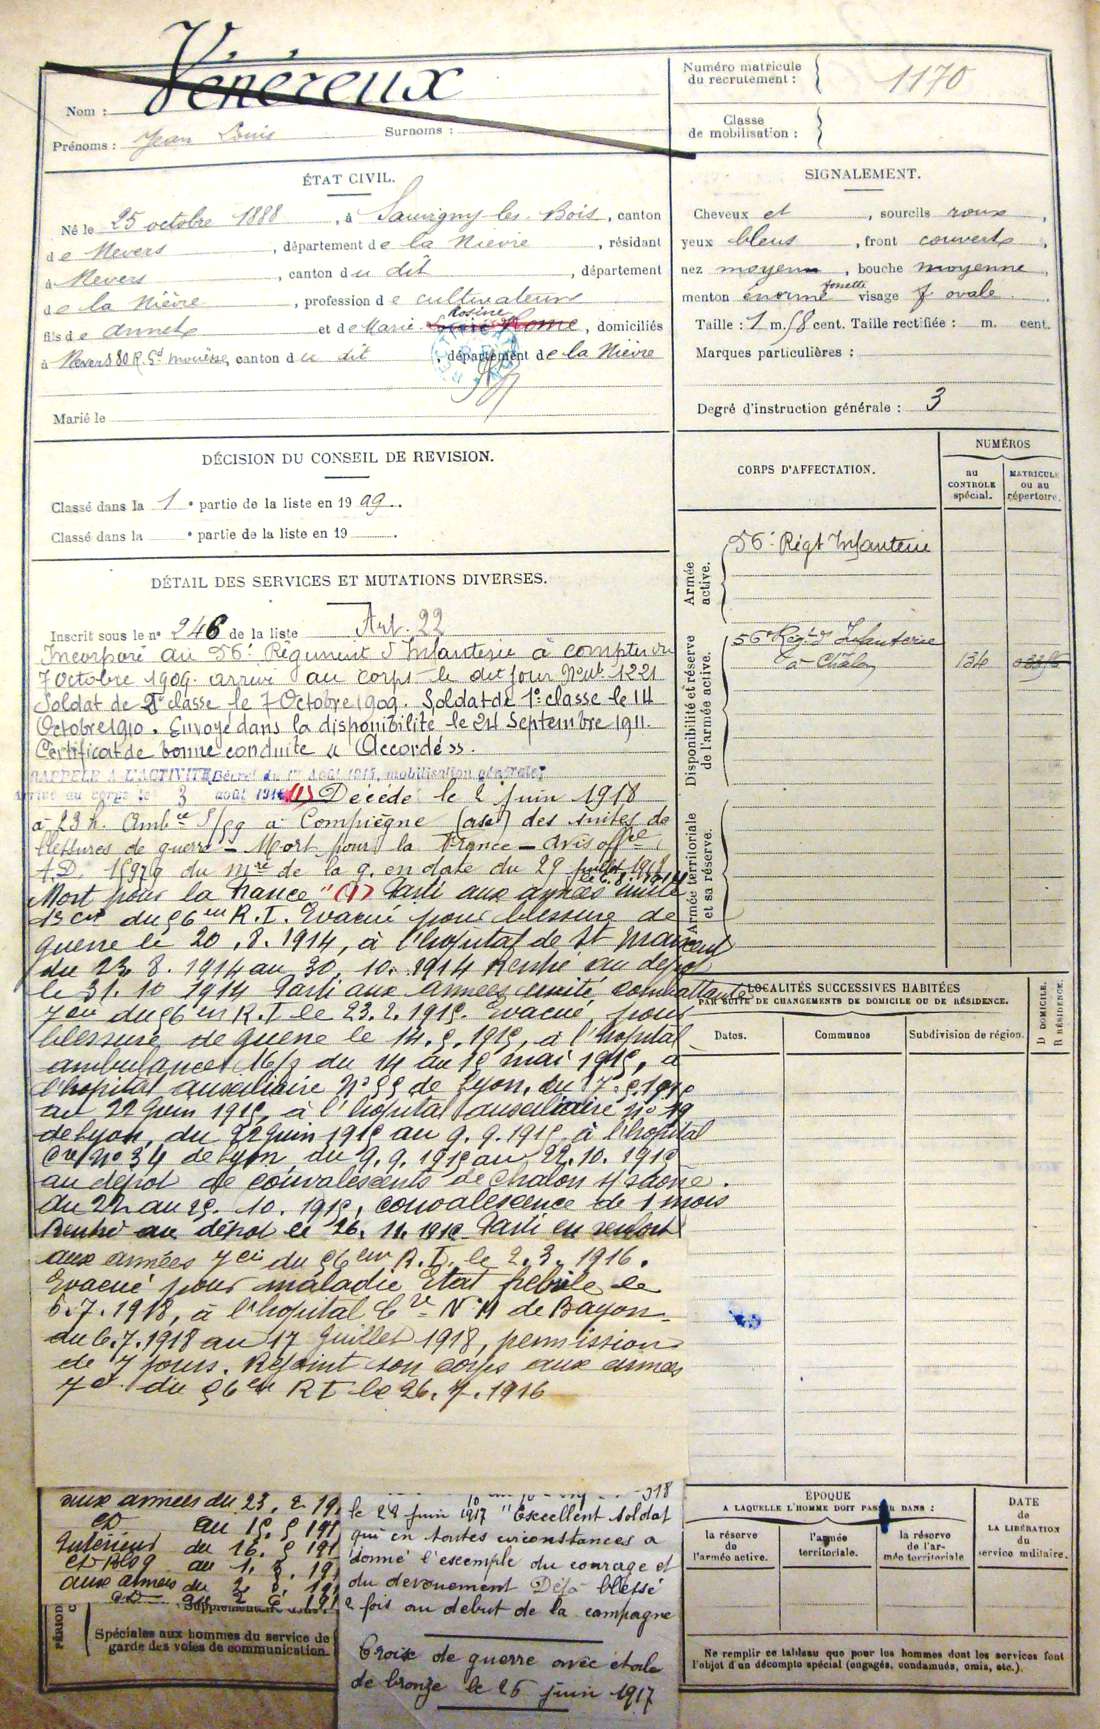 Nom : Vénéreux
Prénoms : Jean Louis Surnoms :
Numéro matricule du recrutement : 1170
Classe de mobilisation :
ÉTAT CIVIL.
Né le 25 octobre 1888, à Sauvigny-les-Bois, canton
de Nevers, département de la Nièvre, résidant
à Nevers, canton du dit, département
de la Nièvre, profession de cultivateur
fils de Annet et de Marie Rosine Rome, domiciliés
à Nevers 80 R. Gd mouësse, canton du dit, département de la Nièvre
Marié le
SIGNALEMENT.
Cheveux et, sourcils roux,
yeux bleus, front couvert,
nez moyen, bouche moyenne,
menton énorme fossette visage f ovale.
Taille : 1 m. 58 cent. Taille rectifiée : m. cent.
Marques particulières :
Degré d'instruction générale : 3
DÉCISION DU CONSEIL DE REVISION.
Classé dans la 1e partie de la liste en 1909.
Classé dans la e partie de la liste en 19 .
DÉTAIL DES SERVICES ET MUTATIONS DIVERSES.
Inscrit sous le no 246 de la liste Art. 22
Incorporé au 56e Régiment d'Infanterie à compter du
7 octobre 1909. arrivé au corps le dit jour No mle 1221
Soldat de 2e classe le 7 Octobre 1909. Soldat de 1e classe le 14
Octobre 1910. Envoyé dans la disponibilité le 24 Septembre 1911.
Certificat de bonne conduite « Accordé ».
RAPPELÉ A L'ACTIVITÉ (Décret du 1er Août 1914, mobilisation générale)
Arrivé au corps le 3 août 1914 (1) Décédé le 2 juin 1918
à 23 h. Ambce 5/59 à Compiègne (Oise) des suites de
blessures de guerre - Mort pour la France - avis offel
A.D. 15979 du mre de la g. en date du 29 juillet 1918
Mort pour la France" (1) Parti aux armées unité le 6.8.1914
du 56eme R.I. Evacué pour blessure de
guerre le 20.8.1914, à l'hopital de St Marcent
du 23.8.1914 au 30.10.1914 Rentré au dépot
le 31.10 1914 Parti aux armées unité combattante
7 cie du 56em R.I le 23.2.1915. Evacué pour
blessure de guerre le 14.5.1915, à l'hopital
ambulance 16/2 du 14 au 15 mai 1915, à
l'hopital auxiliaire No 55 de Lyon, du 17.5.1915
au 22 juin 1915, à l'hopital auxiliaire no 19
de Lyon, du 22 juin 1915 au 9.9.1915 à l'hopital
Cre No 34 de Lyon, du 9.9.1915 au 22.10.1915
au dépot de convalescents de Chalon s/ Saône.
du 22 au 25.10.1915, convalescence de 1 mois
Rentré au dépot le 26.11.1915 Parti en renfort
aux armées 7 cie du 56em R.I. le 2.3.1916.
Evacué pour maladie Etat fébrile le
6.7.1918, à l'hopital Cre No 11 de Bayon
du 6.7.1918 au 17 Juillet 1918, permission
de 7 jours. Rejoint son corps aux armées
7e du 56em R I le 26.7.1916
CORPS D'AFFECTATION.
NUMÉROS
au CONTROLE spécial.
MATRICULE ou au répertoire.
Armée active.
56e Régt Infanterie
Disponibilité et réserve de l'armée active.
56e Régt d'Infanterie
à Chalon 134
Armée territoriale et sa réserve.
LOCALITÉS SUCCESSIVES HABITÉES
PAR SUITE DE CHANGEMENTS DE DOMICILE OU DE RÉSIDENCE.
Dates.
Communes
Subdivision de région.
D DOMICILE.
R RÉSIDENCE.
aux armées du 23. 2. 19
CD au 15. 5 191
Intérieur du 16. 5 191
au 1. 191
aux armées du 2. 191
CD au 2 6. 191
PÉRIOD
Supplémentaire
Spéciales aux hommes du service de
garde des voies de communication.
918
le 28 juin 1917 "Excellent soldat
qui en toutes circonstances a
donné l'exemple du courage et
du devouement Déjà blessé
2 fois au début de la campagne
Croix de guerre avec étoile
de bronze le 26 juin 1917
ÉPOQUE
A LAQUELLE L'HOMME DOIT PASSER DANS :
la réserve de l'armée active.
l'armée territoriale.
la réserve de l'armée territoriale
DATE de LA LIBÉRATION du service militaire.
Ne remplir ce tableau que pour les hommes dont les services font
l'objet d'un décompte spécial (engagés, condamnés, omis, etc.).